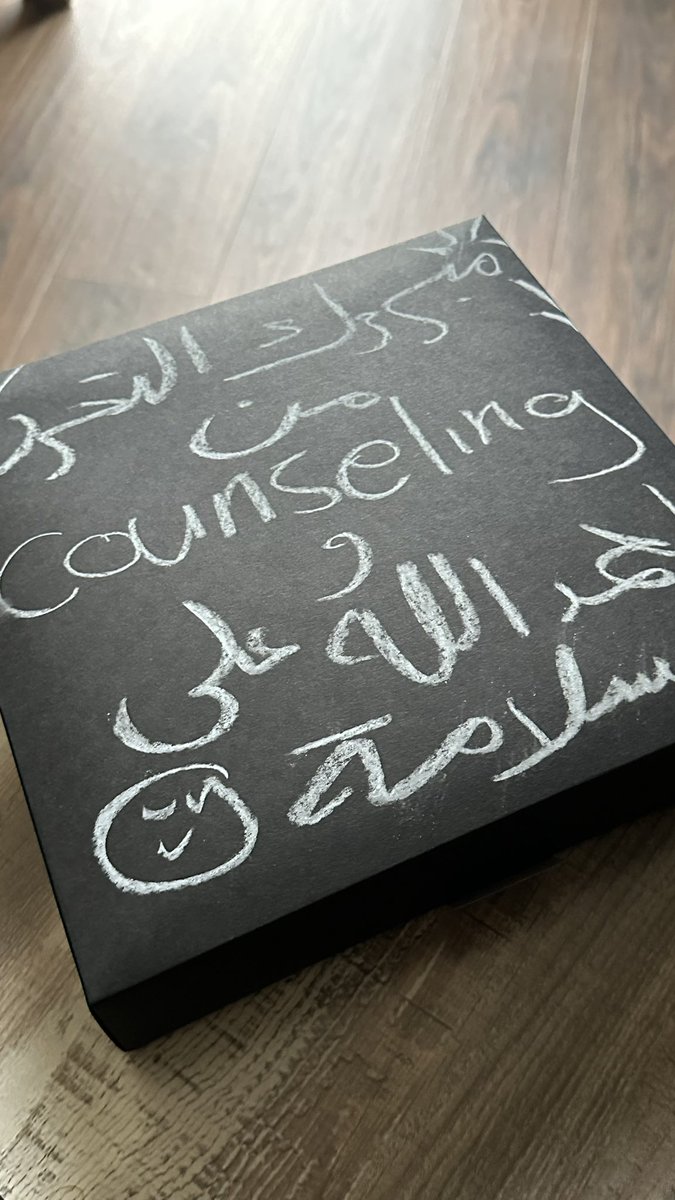 مبروك التحرر
من
counseling
و
الحمد الله على
سلامة